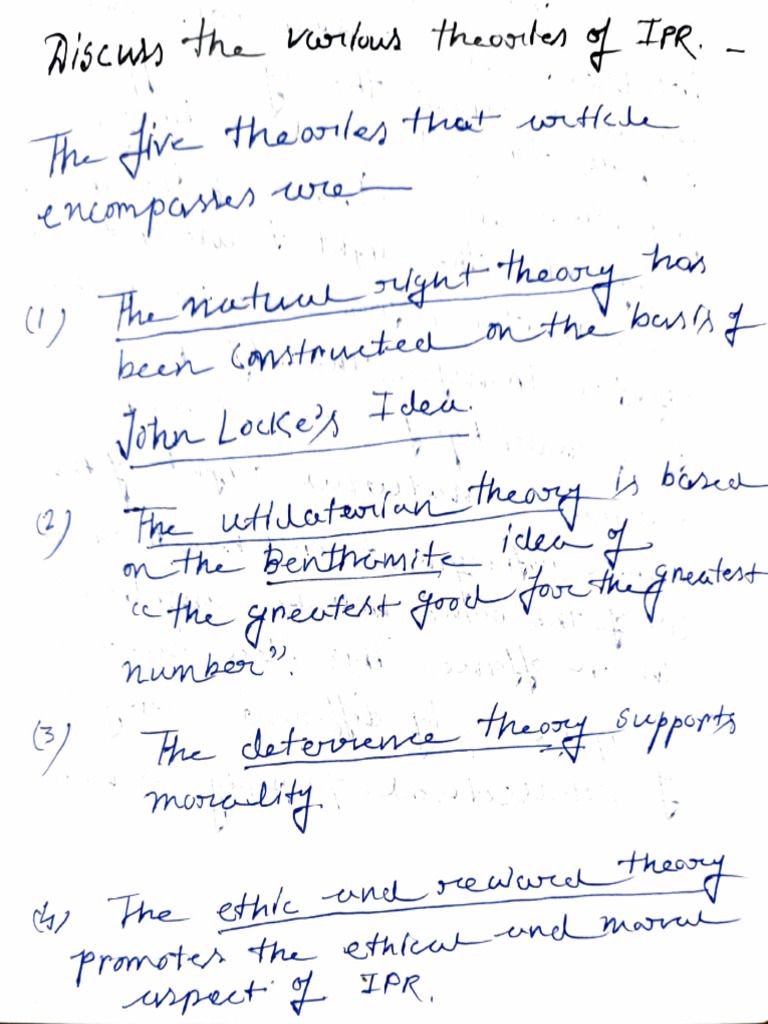 Discuss the various theories of IPR. -
The five theories that article
encompasses are:-
(1) The natural right theory has
been constructed on the basis of
John Locke's Idea.
(2) The utilaterian theory is based
on the Benthamite idea of
"the greatest good for the greatest
number".
(3) The deterrence theory supports
morality.
(4) The ethic and reward theory
promotes the ethical and moral
aspect of IPR.